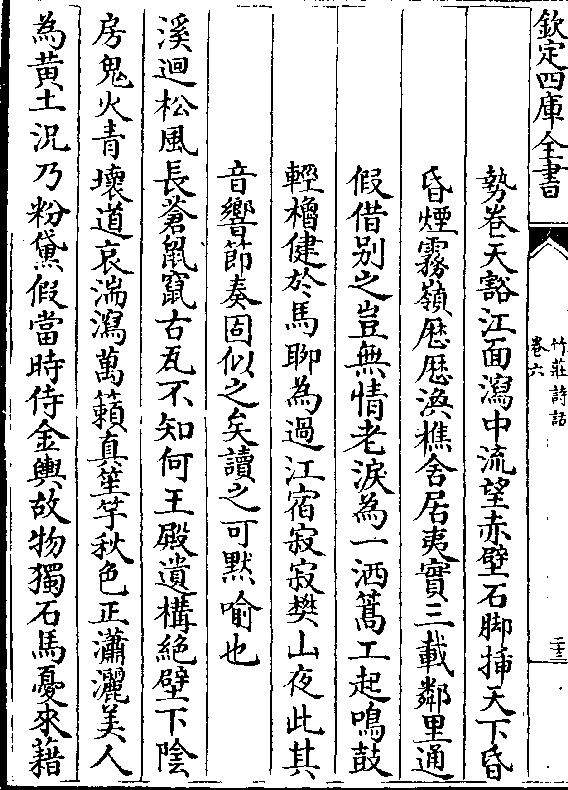 欽定四庫全書
竹莊詩話
卷六
二十三
勢卷天豁江面瀉中流望赤壁石脚插天下昏
昏煙霧嶺歴歴漁樵舍居夷實三載鄰里通
假借别之豈無情老淚為一洒篙工起鳴鼓
輕櫓健於馬聊為過江宿寂寂樊山夜此其
音響節奏固似之矣讀之可黙喻也
溪迴松風長蒼鼠竄古瓦不知何王殿遺構絶壁下陰
房鬼火青壞道哀湍瀉萬籟真笙竽秋色正瀟灑美人
為黄土況乃粉黛假當時侍金輿故物獨石馬憂來藉